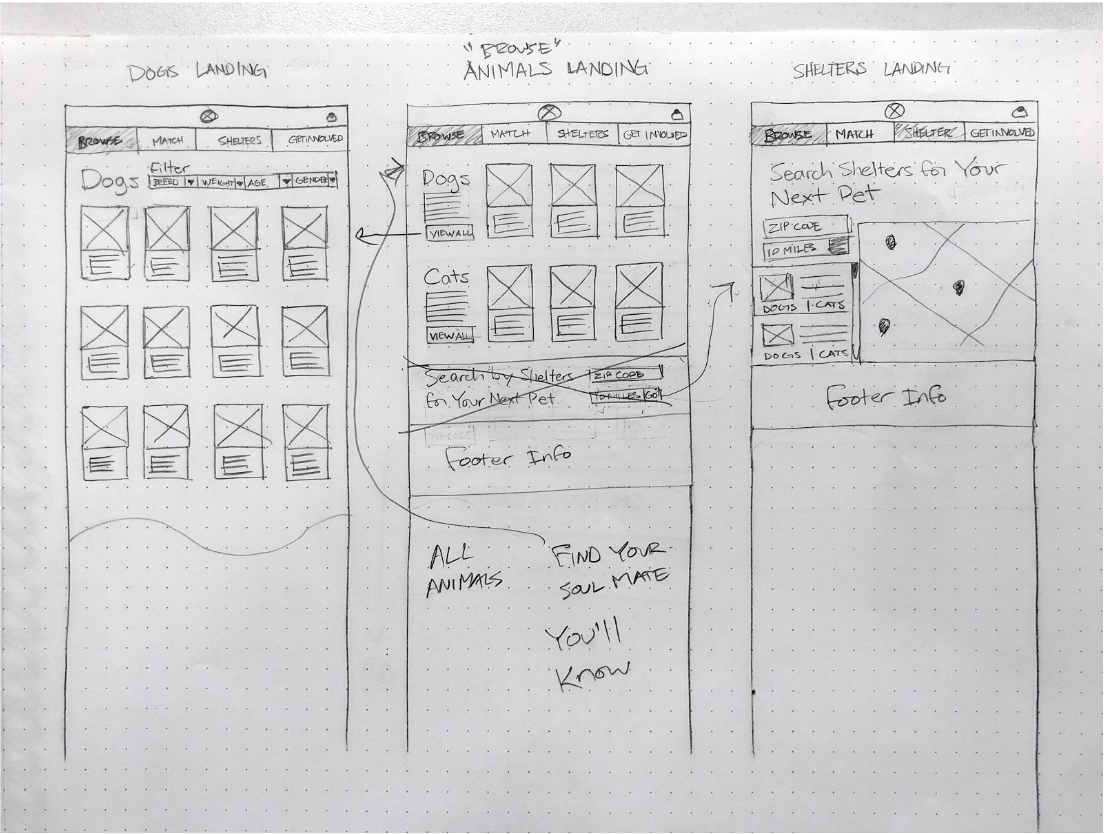 DOGS LANDING
BROWSE
MATCH
SHELTERS
GET INVOLVED
Dogs
Filter
BREED
WEIGHT
AGE
GENDER
"BROWSE"
ANIMALS LANDING
BROWSE
MATCH
SHELTERS
GET INVOLVED
Dogs
VIEW ALL
Cats
VIEW ALL
Search by Shelters
for Your Next Pet
ZIP CODE
10 MILES
GO
Footer Info
ALL
ANIMALS
FIND YOUR
SOUL MATE
You'll
Know
SHELTERS LANDING
BROWSE
MATCH
SHELTER
GET INVOLVED
Search Shelters for Your
Next Pet
ZIP CODE
10 MILES
DOGS | CATS
DOGS | CATS
Footer Info